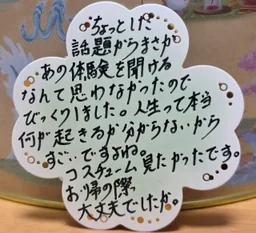 ちょっとした
話題からまさか
あの体験を聞ける
なんて思わなかったので
びっくりしました。人生って本当
何が起きるか分からないから
すごいですよね。
コスチューム見たかったです。
お帰の際、
大丈夫でしたか。